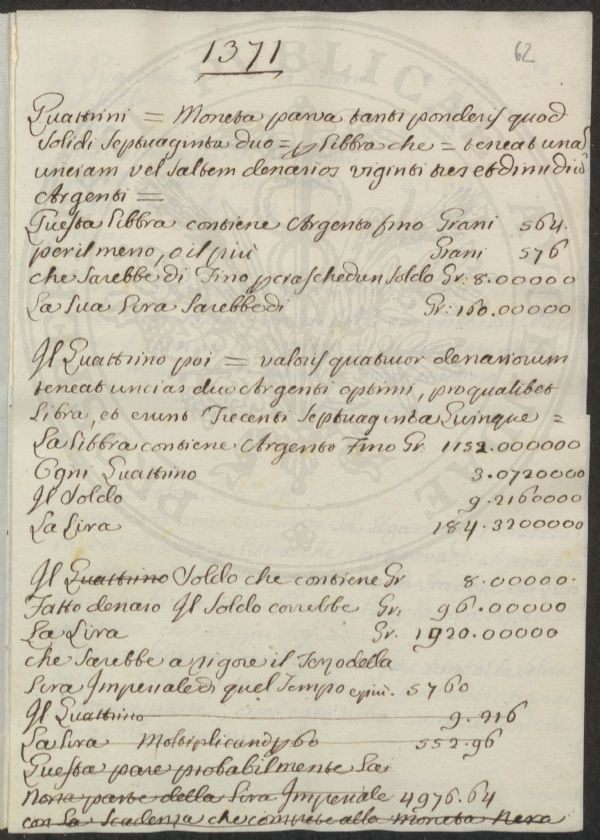 1371
62
Quattrini = Moneta parva tanti ponderis quod
solidi septuaginta duo = p libbra che = teneat una
unciam vel saltem denarios viginti tres et dimidiũ
Argenti =
Questa libbra contiene Argento fino Grani 564.
per il meno, o il più Grani 576
che sarebbe di Fino p ciaschedun soldo Gr: 8.00000
La sua Lira sarebbe di Gr: 160.00000
Il Quattrino poi = valoris quatuor denariorum
teneat uncias duo Argenti optimi, pro qualibet
Libra, et erunt Trecenti septuaginta Quinque =
La libbra contiene Argento Fino Gr 1152.000000
Ogni Quattrino 3.0720000
Il Soldo 9.2160000
La Lira 184.3200000
Il Quattrino Soldo che contiene Gr 8.00000.
Fatto denaio Il Soldo correbbe Gr: 96.00000
La Lira Gr. 1920.00000
che sarebbe a rigore il Terzo della
Lira Imperiale di quel Tempo e più. 5760
Il Quattrino 9.216
La Lira Moltiplicand p 60 552.96
Questa pare probabilmente la
Nona parte della Lira Imperiale 4976.64
con La Scadenza che alla Moneta Nera
PUBLICA